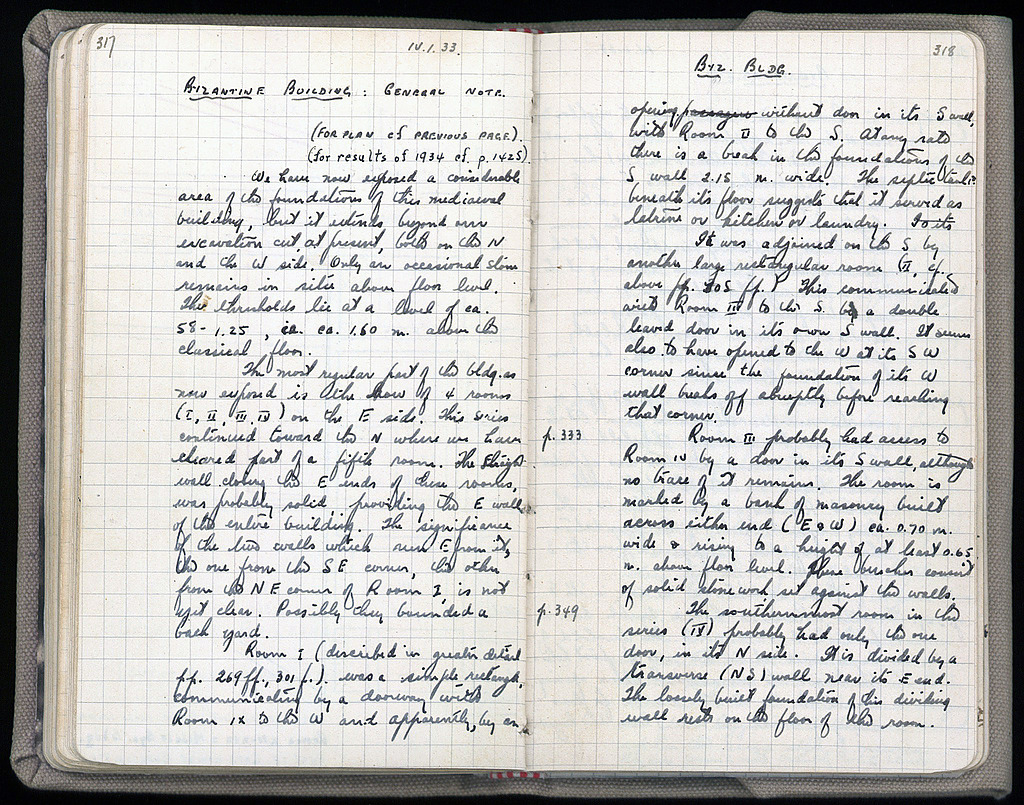 317
IV.1.33.
BYZANTINE BUILDING: GENERAL NOTE.
(FOR PLAN cf PREVIOUS PAGE).
(for results of 1934 cf. p.1425).
We have now exposed a considerable
area of the foundations of this mediaeval
building, but it extends beyond our
excavation cut at present, both on the N
and the W side. Only an occasional stone
remains in situ above floor level.
The thresholds lie at a level of ca.
58-1.25, ca. 1.60 m. above the
classical floor.
The most regular part of the bldg. as
now exposed is the row of 4 rooms
(I, II, III, IV) on the E side. This series
continued toward the N where we have
cleared part of a fifth room. The straight
wall closing the E ends of these rooms,
was probably solid, providing the E wall
of the entire building. The significance
of the two walls which run E from it,
the one from the SE corner, the other
from the NE corner of Room I, is not
yet clear. Possibly they bounded a
back yard.
Room I (described in greater detail
pp. 269ff., 301 f.). was a simple rectangle,
communicating by a doorway with
Room IX to the W and apparently, by an
318
BYZ. BLDG.
opening passage without door in its S wall,
with Room II to the S. At any rate
there is a break in the foundations of the
S wall 2.15 m. wide. The septic tank
beneath its floor suggests that it served as
latrine or kitchen or laundry. To its
It was adjoined on the S by
another large rectangular room (II, cf.
above pp. 205 ff.) This communicated
with Room III to the S. by a double
leaved door in its own S wall. It seems
also to have opened to the W at its S W
corner since the foundation of its W
wall breaks off abruptly before reaching
that corner.
p.333
Room III probably had access to
Room IV by a door in its S wall, although
no trace of it remains. The room is
marked by a bank of masonry built
across either end (E & W) ca. 0.70 m.
wide & rising to a height of at least 0.65
m. above floor level. These benches consist
of solid stonework set against the walls.
p.349
The southernmost room in the
series (IV) probably had only the one
door, in its N side. It is divided by a
transverse (NS) wall near its E end.
The loosely built foundation of this dividing
wall rests on the floor of the room.